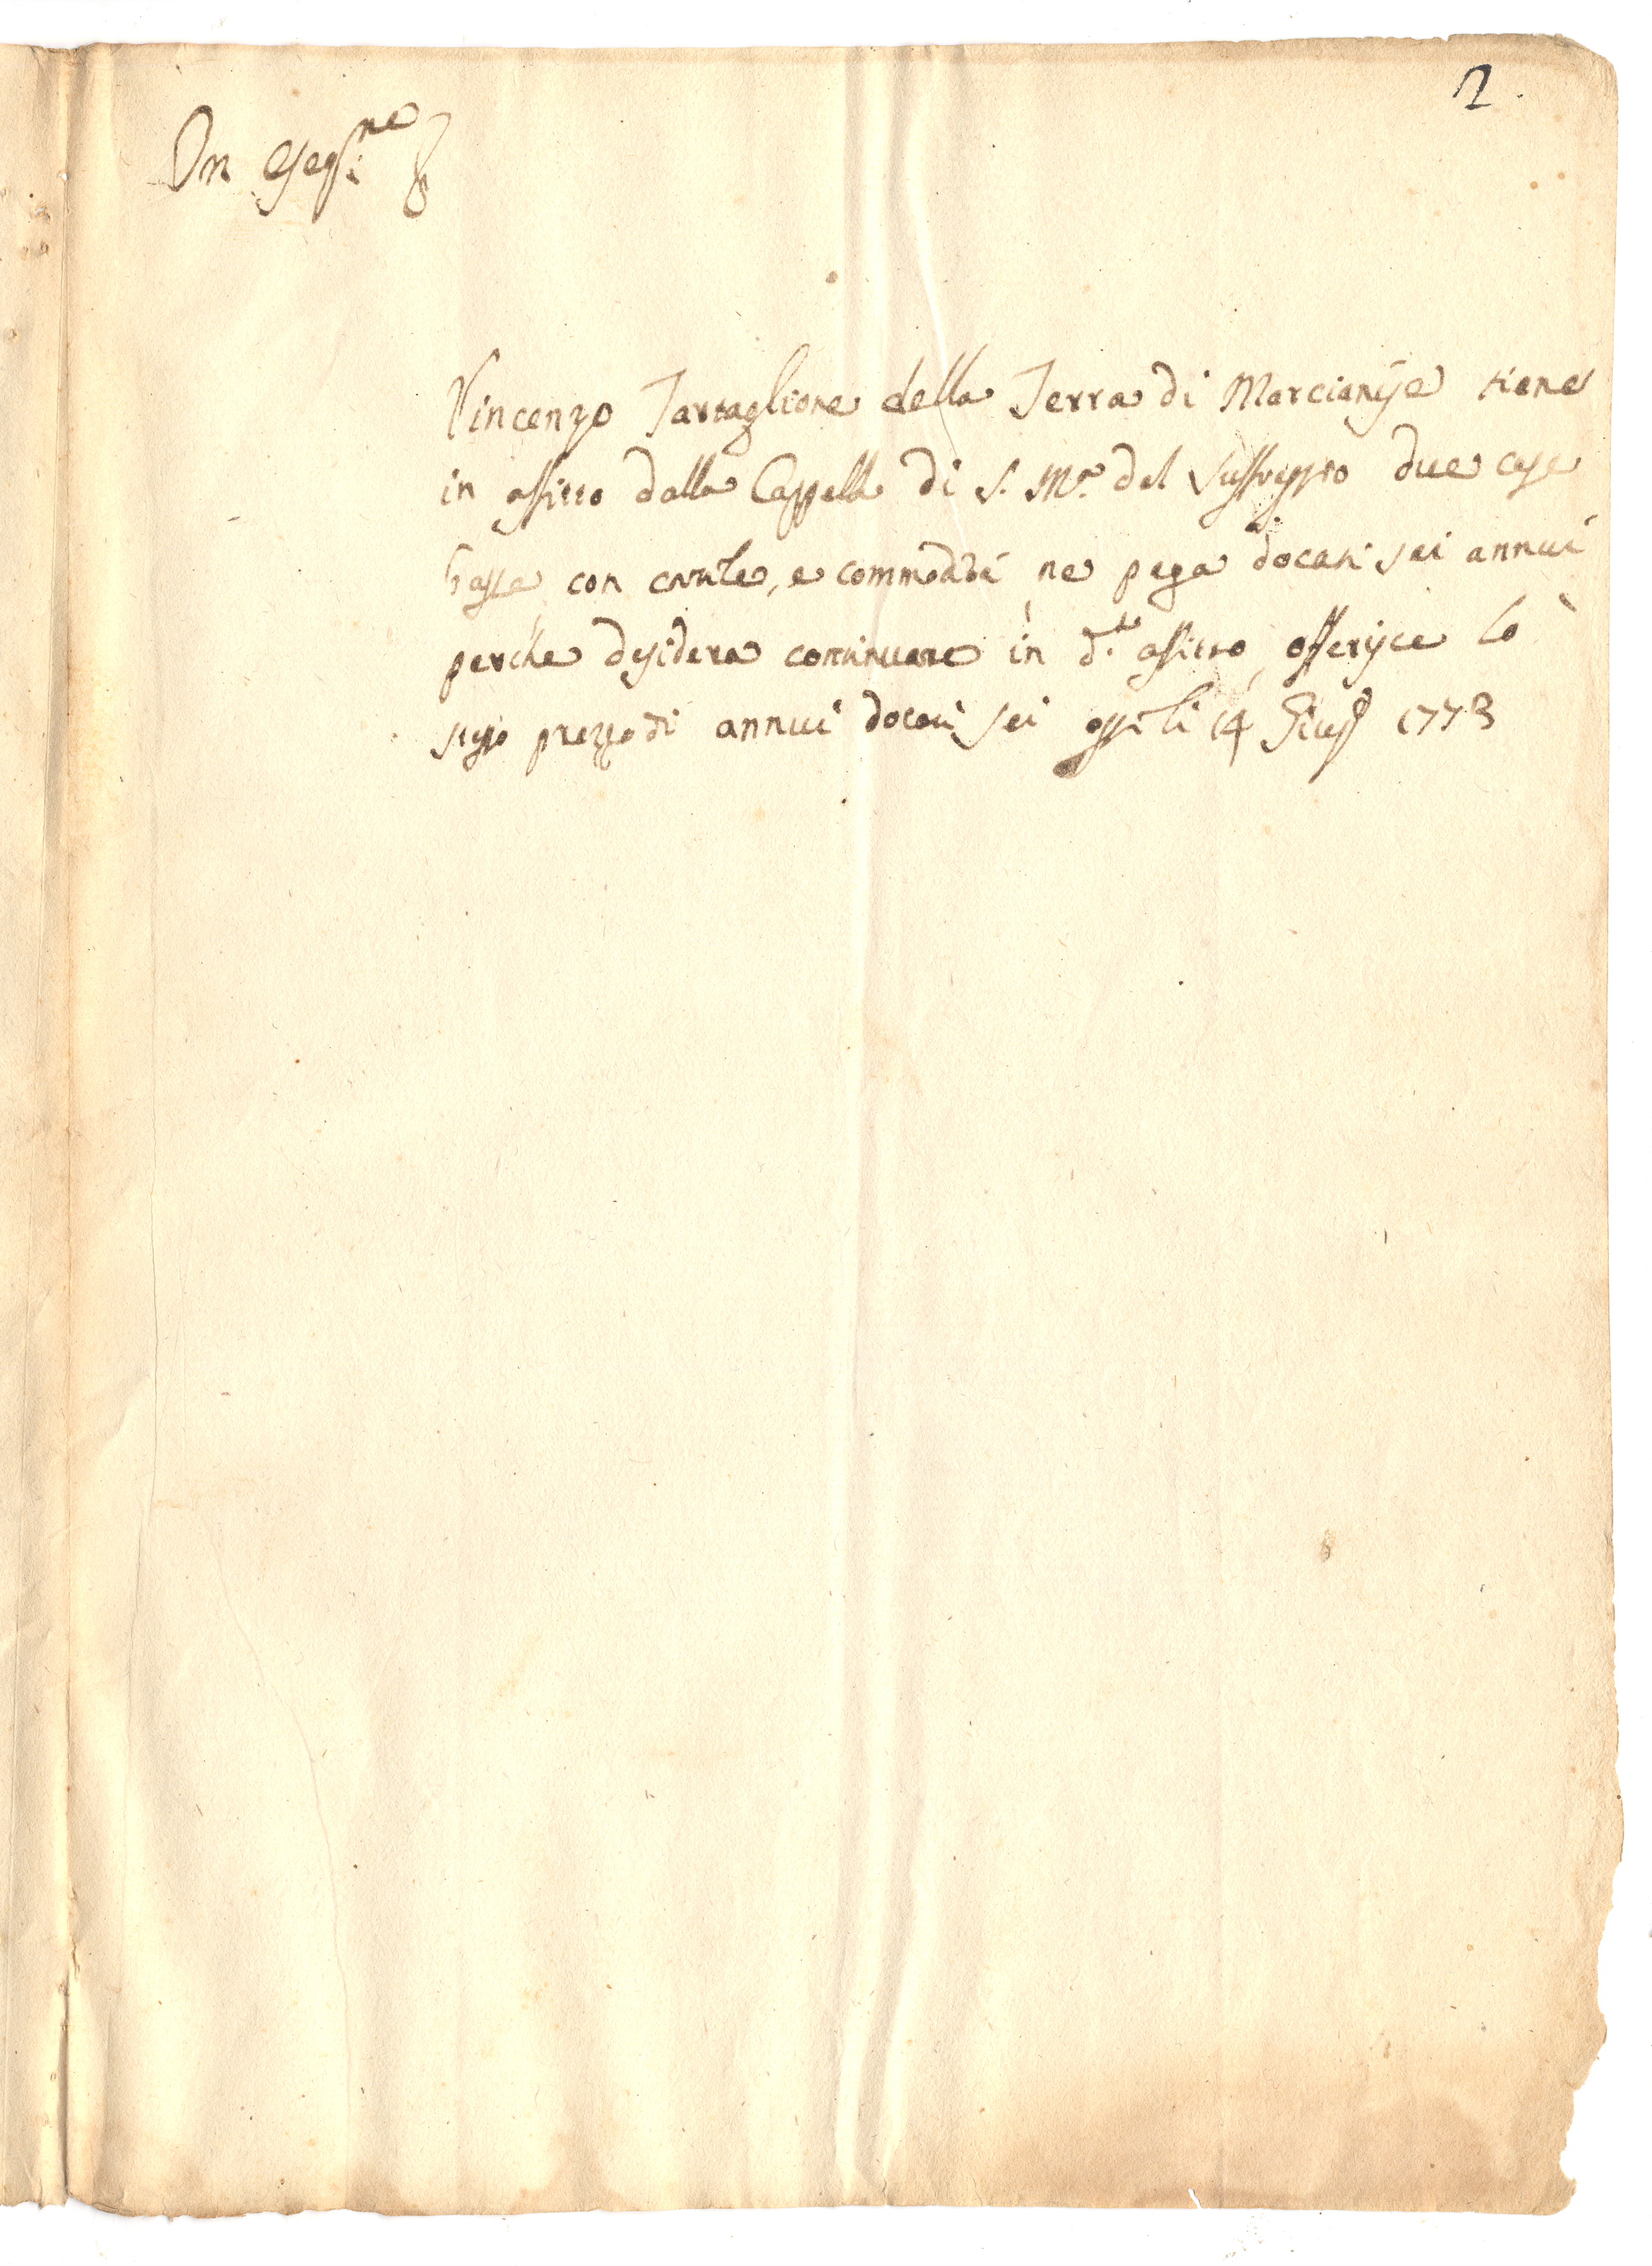 2.
Vincenzo Tartaglione della Terra di Marcianise tiene
in affitto dalla Cappella di S. Mª. del Suffraggio due case
basse con cortile, e commodità ne paga docati sei annui
perche desidera continuare in d.to affitto, offerisce lo
stesso prezzo di annui docati sei oggi li 14 Giug 1773